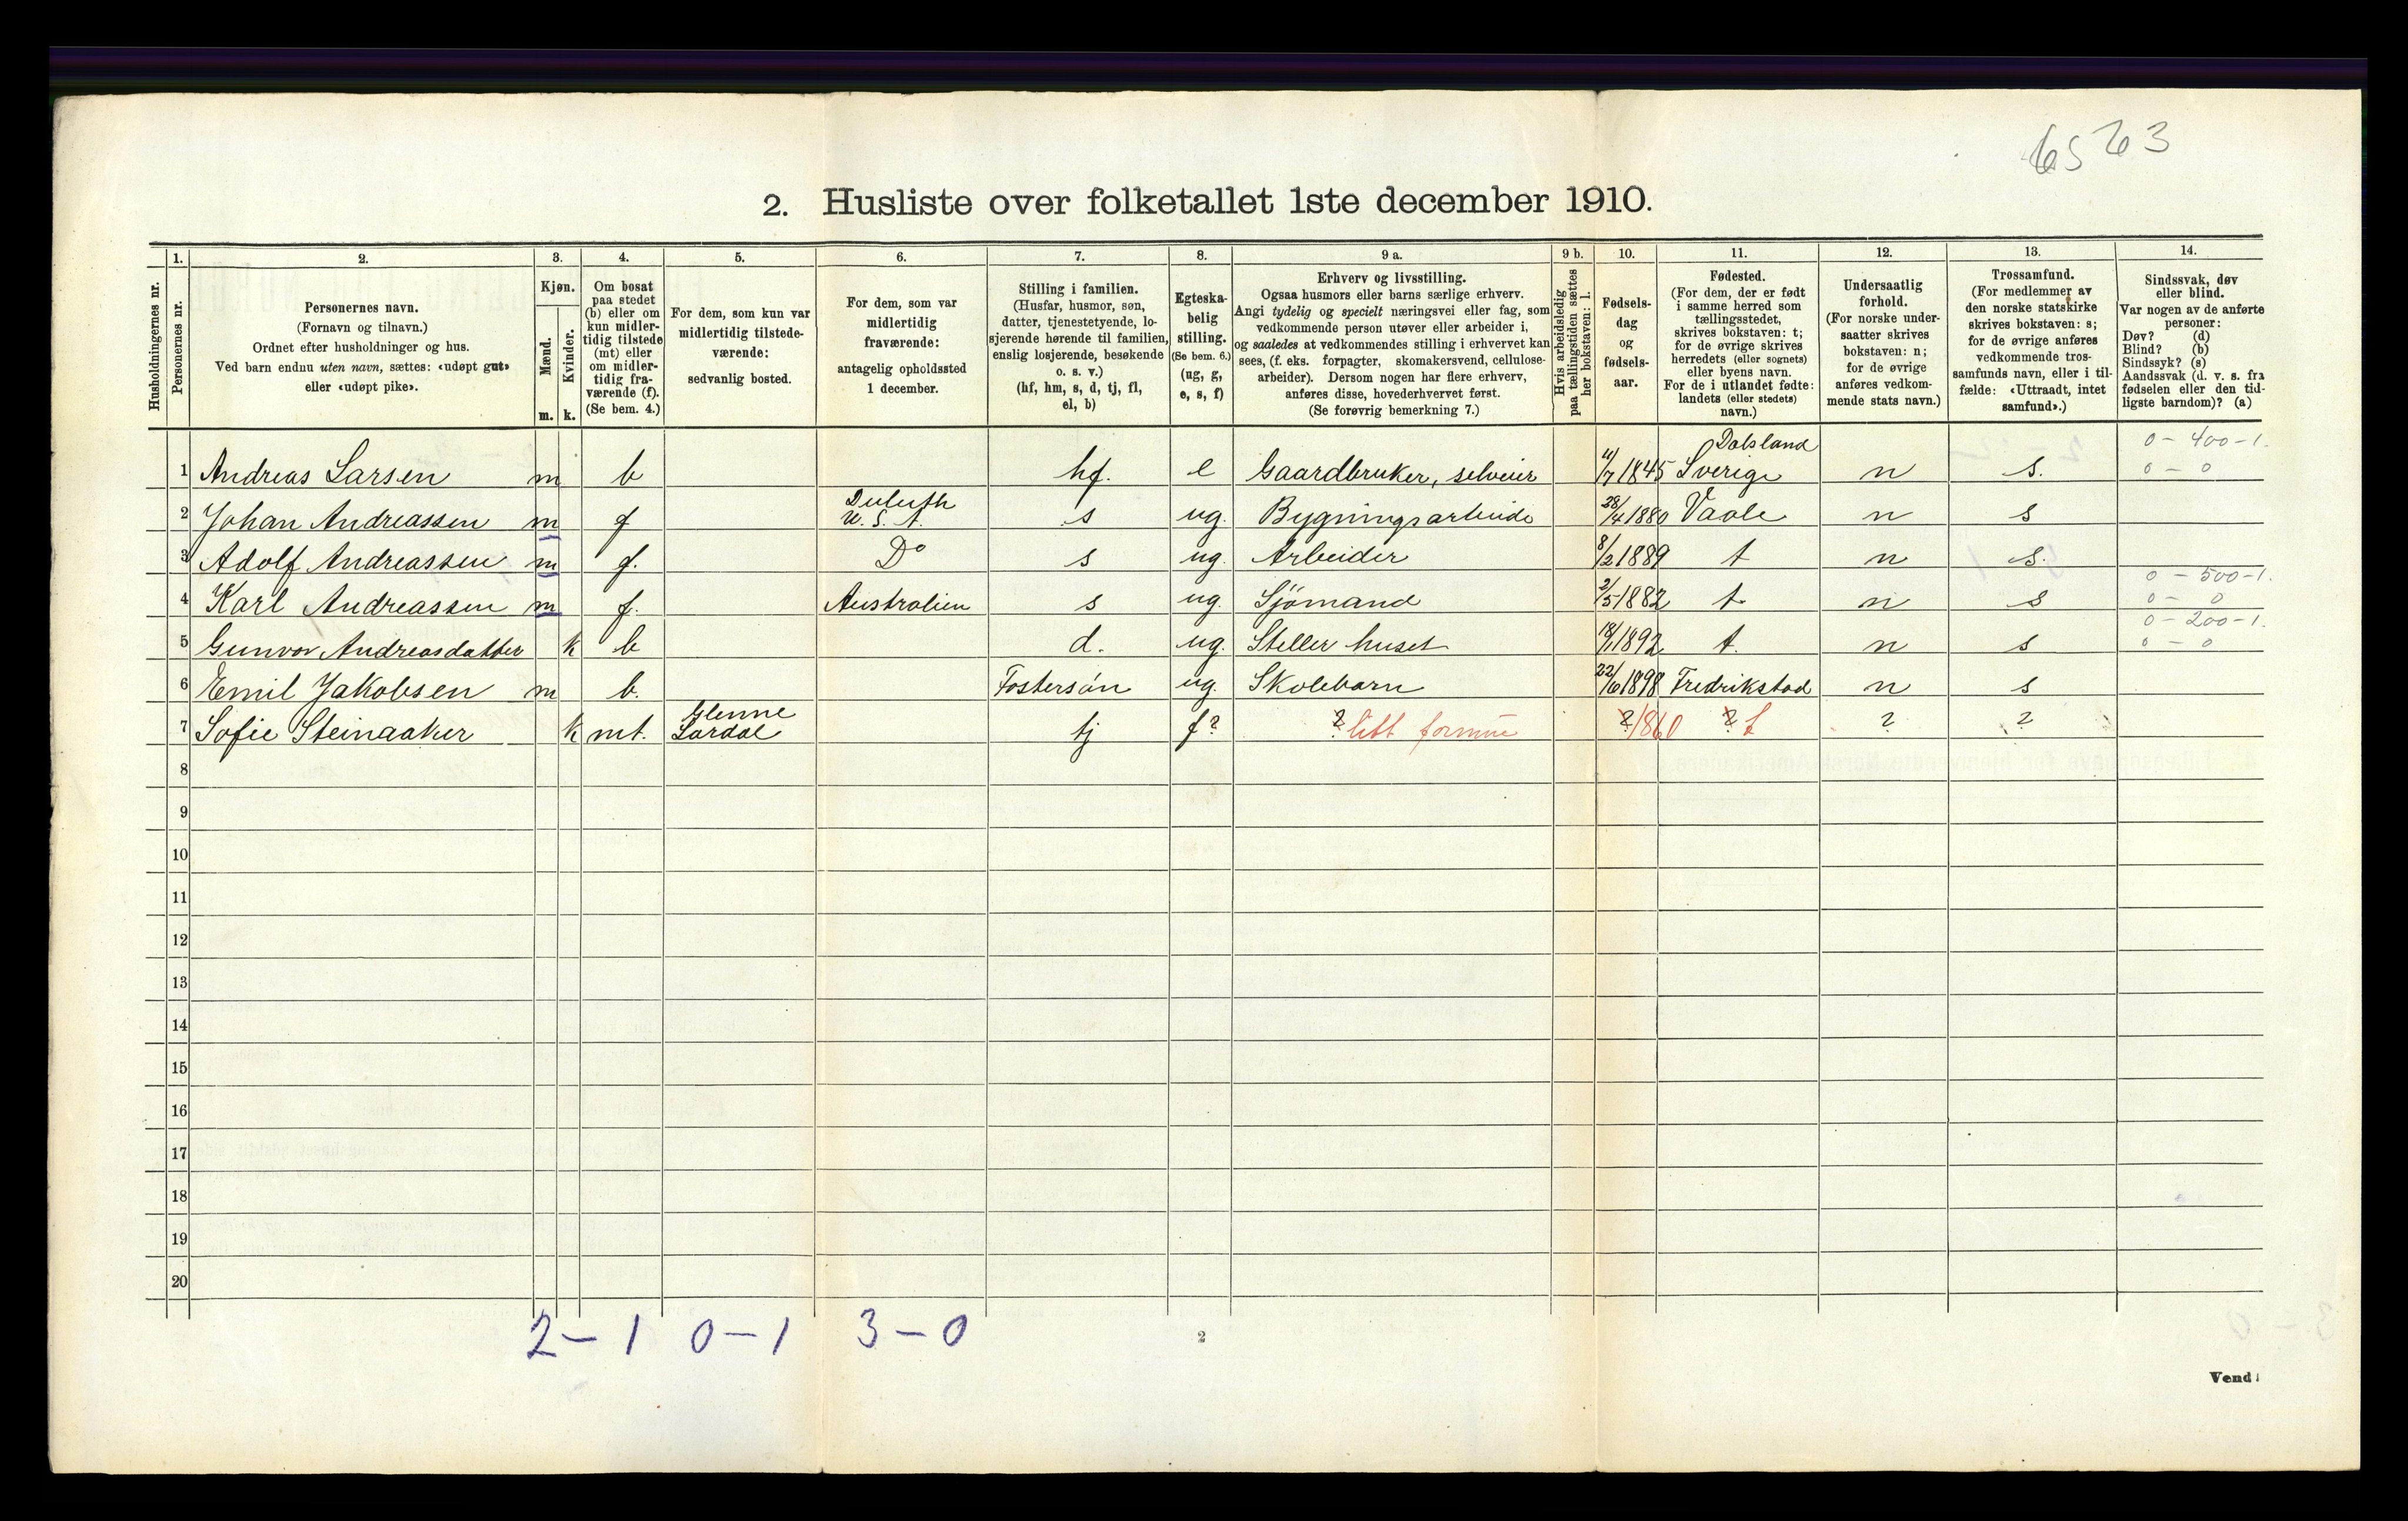 6563
2. Husliste over folketallet 1ste december 1910.
Husholdningernes nr.
1. Personernes nr.
2. Personernes navn.
(Fornavn og tilnavn.)
Ordnet efter husholdninger og hus.
Ved barn endnu uten navn, sættes: «udøpt gut»
eller «udøpt pike».
3. Kjøn.
Mænd. m.
Kvinder. k.
4. Om bosat
paa stedet
(b) eller om
kun midler-
tidig tilstede
(mt) eller
om midler-
tidig fra-
værende (f).
(Se bem. 4.)
5. For dem, som kun var
midlertidig tilstede-
værende:
sedvanlig bosted.
6. For dem, som var
midlertidig
fraværende:
antagelig opholdssted
1 december.
7. Stilling i familien.
(Husfar, husmor, søn,
datter, tjenestetyende, lo-
sjerende hørende til familien,
enslig losjerende, besøkende
o. s. v.)
(hf, hm, s, d, tj, fl,
el, b)
8. Egteska-
belig
stilling.
(Se bem. 6.)
(ug, g,
e, s, f)
9 a. Erhverv og livsstilling.
Ogsaa husmors eller barns særlige erhverv.
Angi tydelig og specielt næringsvei eller fag, som
vedkommende person utøver eller arbeider i,
og saaledes at vedkommendes stilling i erhvervet kan
sees, (f. eks. forpagter, skomakersvend, cellulose-
arbeider). Dersom nogen har flere erhverv,
anføres disse, hovederhvervet først.
(Se forøvrig bemerkning 7.)
9 b. Hvis arbeidsledig
paa tællingstiden sættes
her bokstaven: l.
10. Fødsels-
dag
og
fødsels-
aar.
11. Fødested.
(For dem, der er født
i samme herred som
tællingsstedet,
skrives bokstaven: t;
for de øvrige skrives
herredets (eller sognets)
eller byens navn.
For de i utlandet fødte:
landets (eller stedets)
navn.)
12. Undersaatlig
forhold.
(For norske under-
saatter skrives
bokstaven: n;
for de øvrige
anføres vedkom-
mende stats navn.)
13. Trossamfund.
(For medlemmer av
den norske statskirke
skrives bokstaven: s;
for de øvrige anføres
vedkommende tros-
samfunds navn, eller i til-
fælde: «Uttraadt, intet
samfund».)
14. Sindssvak, døv
eller blind.
Var nogen av de anførte
personer:
Døv? (d)
Blind? (b)
Sindssyk? (s)
Aandssvak (d. v. s. fra
fødselen eller den tid-
ligste barndom)? (a)
1 Andreas Larsen m b hf. e Gaardbruker, selveier 11/7 1845 Dalsland Sverige n s. 0 - 400 - 1. 0 - 0
2 Johan Andreassen m f Duluth U. S. A. s ug. Bygningsarbeide 28/4 1880 Vaale n s
3 Adolf Andreassen m f. Do s ug. Arbeider 8/2 1889 t n s.
4 Karl Andreassen m f. Australien s ug. Sjömand 2/5 1882 t n s 0 - 500 - 1. 0 - 0
5 Gunvor Andreasdatter k b d. ug. Steller huset 18/1 1892 t. n s 0 - 200 - 1. 0 - 0
6 Emil Jakobsen m b. Fostersön ug. Skolebarn 22/6 1898 Fredrikstad n s
7 Sofie Steinaaker k mt. Glenne Lardal tj f? ? litt formue ? 1860 ? t ? ?
8
9
10
11
12
13
14
15
16
17
18
19
20
2 - 1 0 - 1 3 - 0
2
Vend!